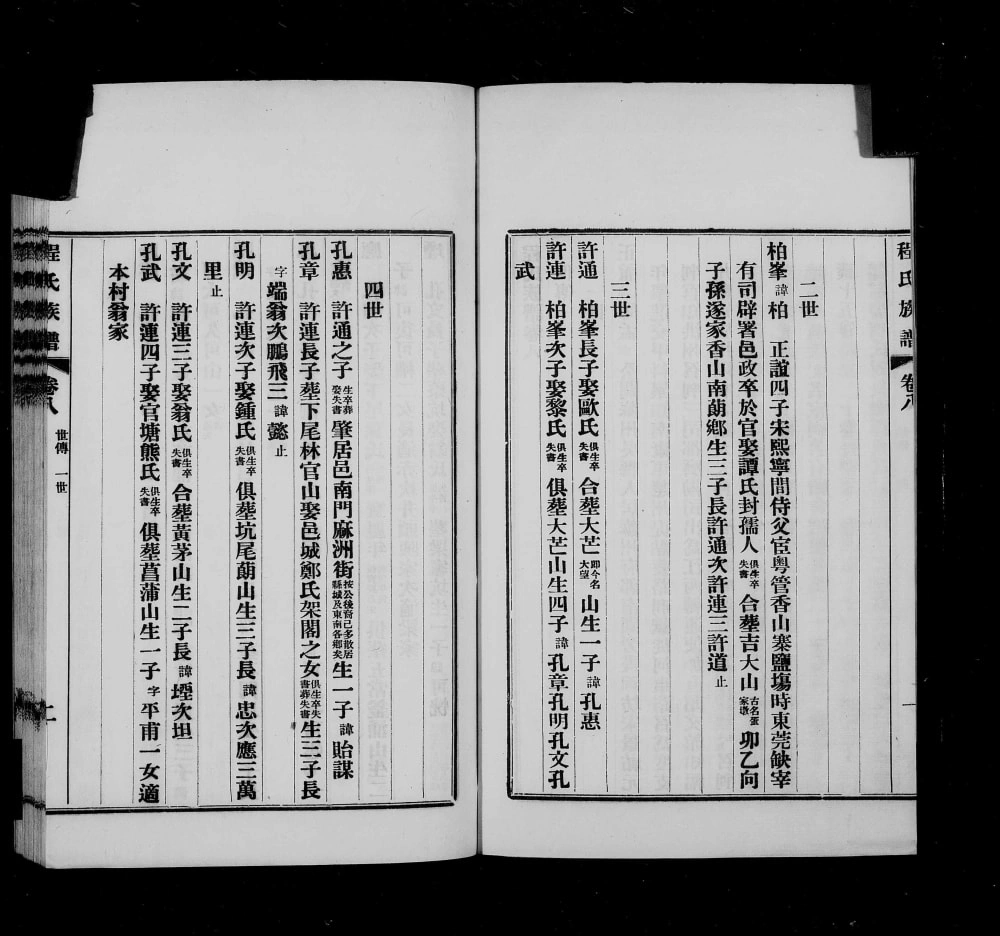 程氏族譜 卷八
二世
柏峯 諱柏 正誼四子宋熙寧間侍父宦粤管香山寨鹽塲時東莞缺宰
有司辟署邑政卒於官娶譚氏封孺人俱生卒失書合塟吉大山古名張家墩卯乙向
子孫遂家香山南蓢鄉生三子長許通次許連三許道止
三世
許通 柏峯長子娶歐氏俱生卒失書合塟大芒即今名大望山生一子諱孔惠
許連 柏峯次子娶黎氏俱生卒失書俱塟大芒山生四子諱孔章孔明孔文孔
武
四世
孔惠 許通之子生卒葬娶失書肇居邑南門麻洲街按公後裔已多散居縣城及東南各鄉矣生一子諱貽謀
孔章 許連長子塟下尾林官山娶邑城鄭氏架閣之女俱生卒失書葬失書生三子長
字端翁次鵬飛三諱懿止
孔明 許連次子娶鍾氏俱生卒失書俱塟坑尾蓢山生三子長諱忠次應三萬
里止
孔文 許連三子娶翁氏俱生卒失書合塟黃茅山生二子長諱堙次坦
孔武 許連四子娶官塘熊氏俱生卒失書俱塟菖蒲山生一子字平甫一女適
本村翁家
程氏族譜 卷八 世傳 一世 二